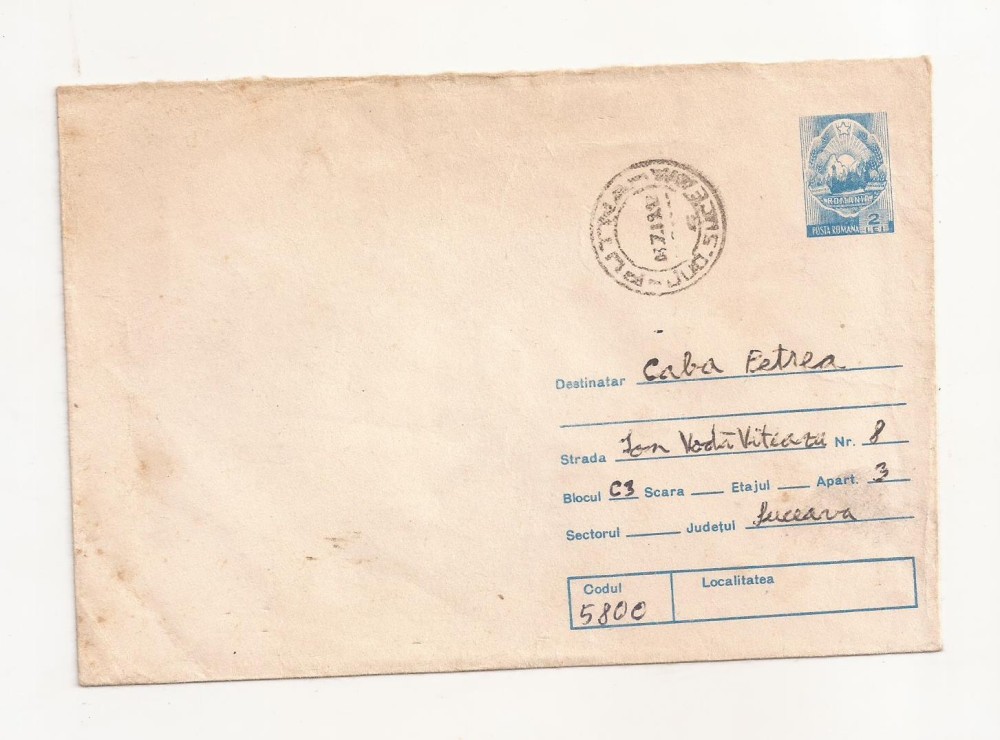 ROMANIA
POSTA ROMANA 2 LEI
PUTNA
JUD. SUCEAVA
Destinatar Caba Petrea
Strada Ion Vodă Viteazu Nr. 8
Blocul C3 Scara Etajul Apart. 3
Sectorul Județul Suceava
Codul Localitatea
5800